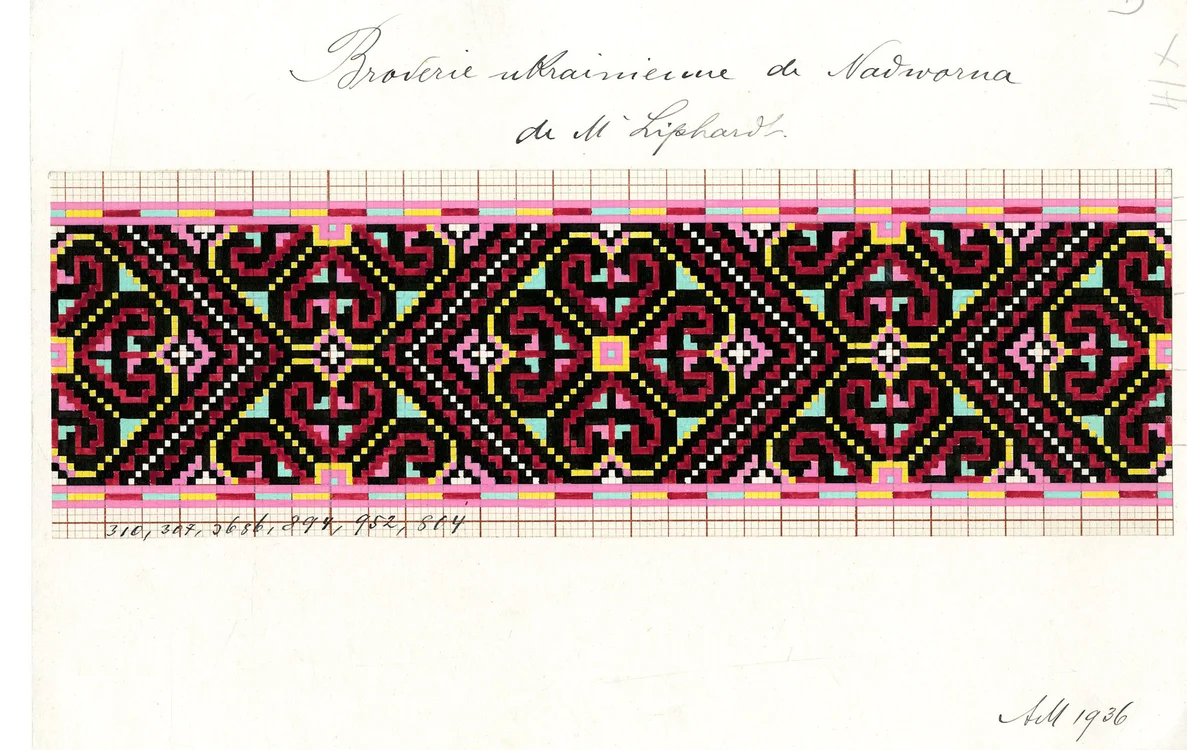 Broderie ukrainienne de Nadworna
de Mr Liphardt.
310, 307, 3686, 894, 952, 814
AM 1936